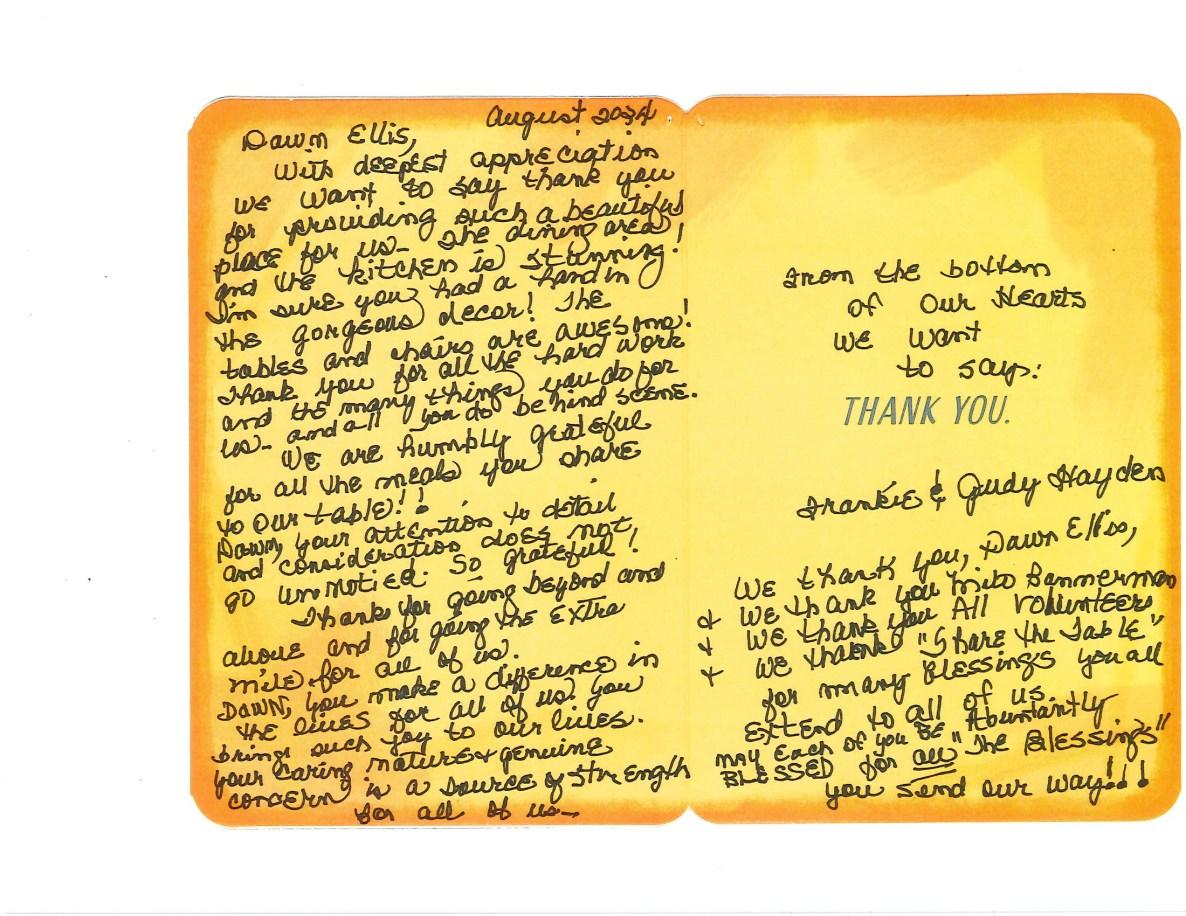 August 2024
Dawn Ellis,
With deepest appreciation
we want to say thank you
for providing such a beautiful
place for us - The dining area
and the kitchen is stunning!
I'm sure you had a hand in
the gorgeous decor! The
tables and chairs are awesome!
Thank you for all the hard work
and the many things you do for
us - and all you do behind scene.
We are humbly grateful
for all the meals you share
to our table!!
Dawn, your attention to detail
and consideration does not
go unnoticed. So grateful!
Thanks for going beyond and
above and for going the extra
mile for all of us.
Dawn, you make a difference in
the lives for all of us! You
bring such joy to our lives.
your caring nature & genuine
concern is a source of strength
for all of us -
From the bottom
of our Hearts
we want
to say:
THANK YOU.
Frankie & Judy Hayden
We thank you, Dawn Ellis,
& We thank you Milo Bannerman
& We thank you All Volunteers
& We thank "Share the Table"
for many Blessings you all
extend to all of us.
may Each of you BE "Abuntantly
BLESSED for all "The Blessings"
you send our way!!!